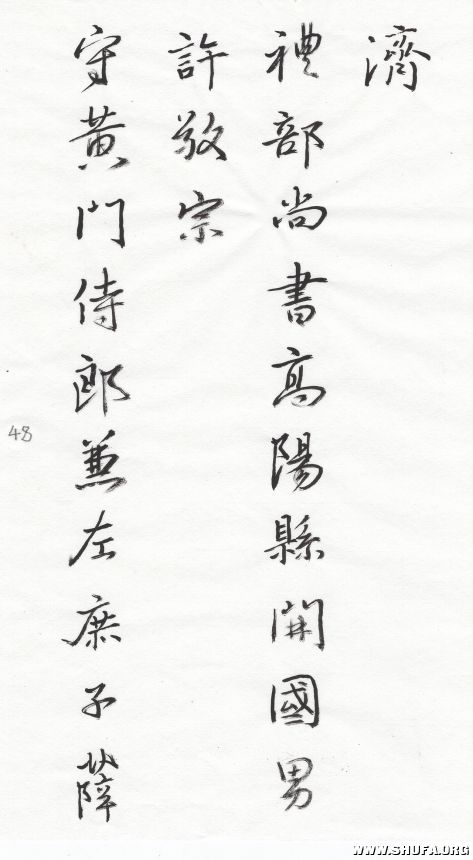 濟
禮部尚書高陽縣開國男
許敬宗
守黃門侍郎兼左庶子薩
48
WWW.SHUFA.ORG